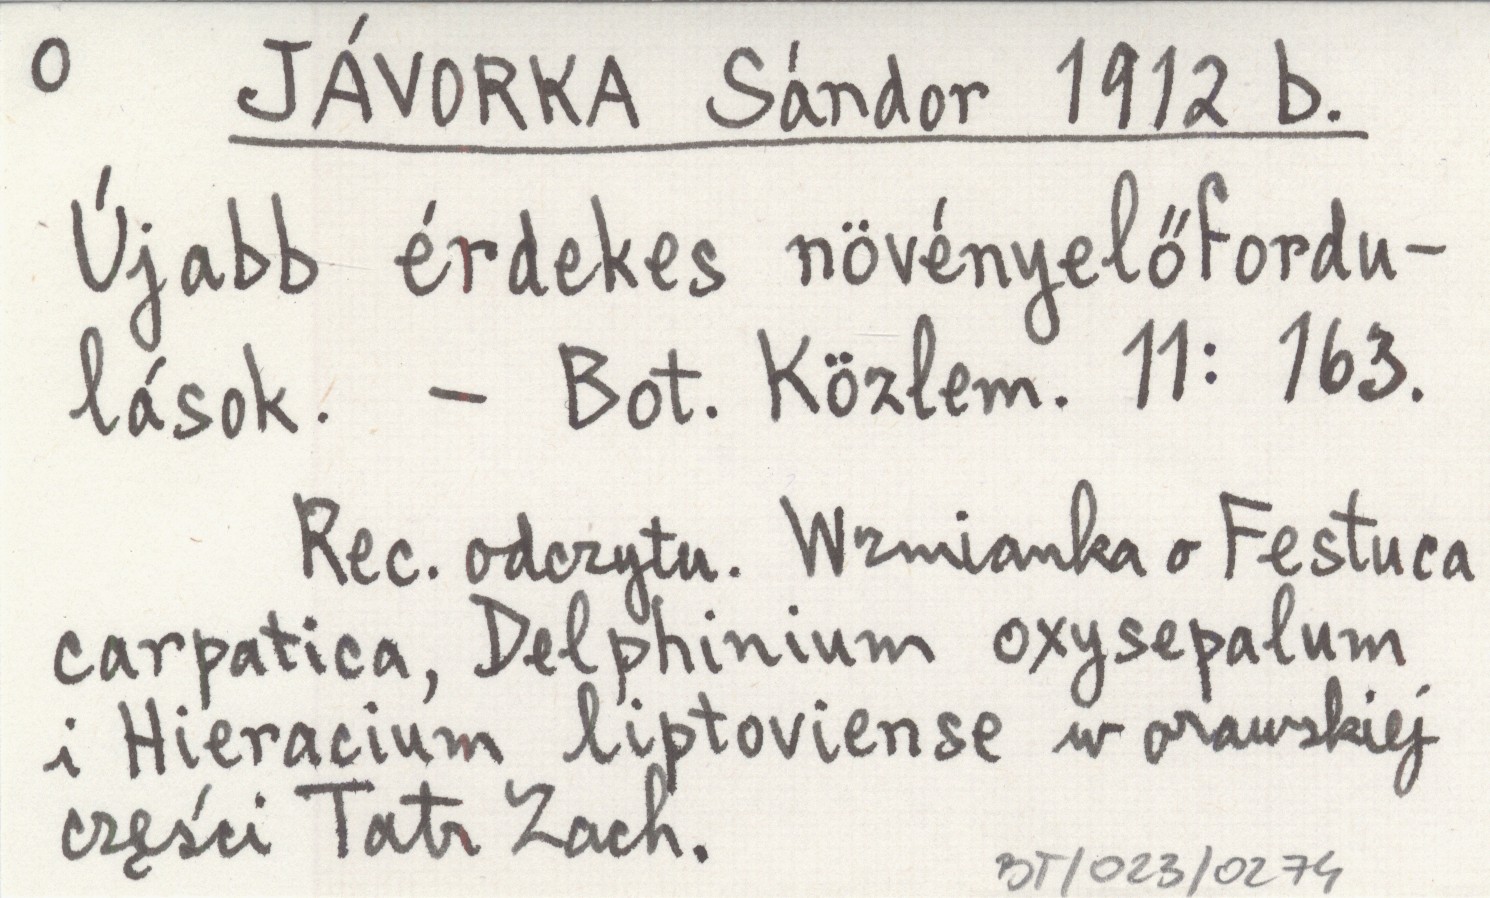 O JÁVORKA Sándor 1912 b.
Újabb érdekes növényelőfordu-
lások. – Bot. Közlem. 11: 163.
Rec. odczytu. Wzmianka o Festuca
carpatica, Delphinium oxysepalum
i Hieracium liptoviense w orawskiej
części Tatr Zach.
BT/023/0274